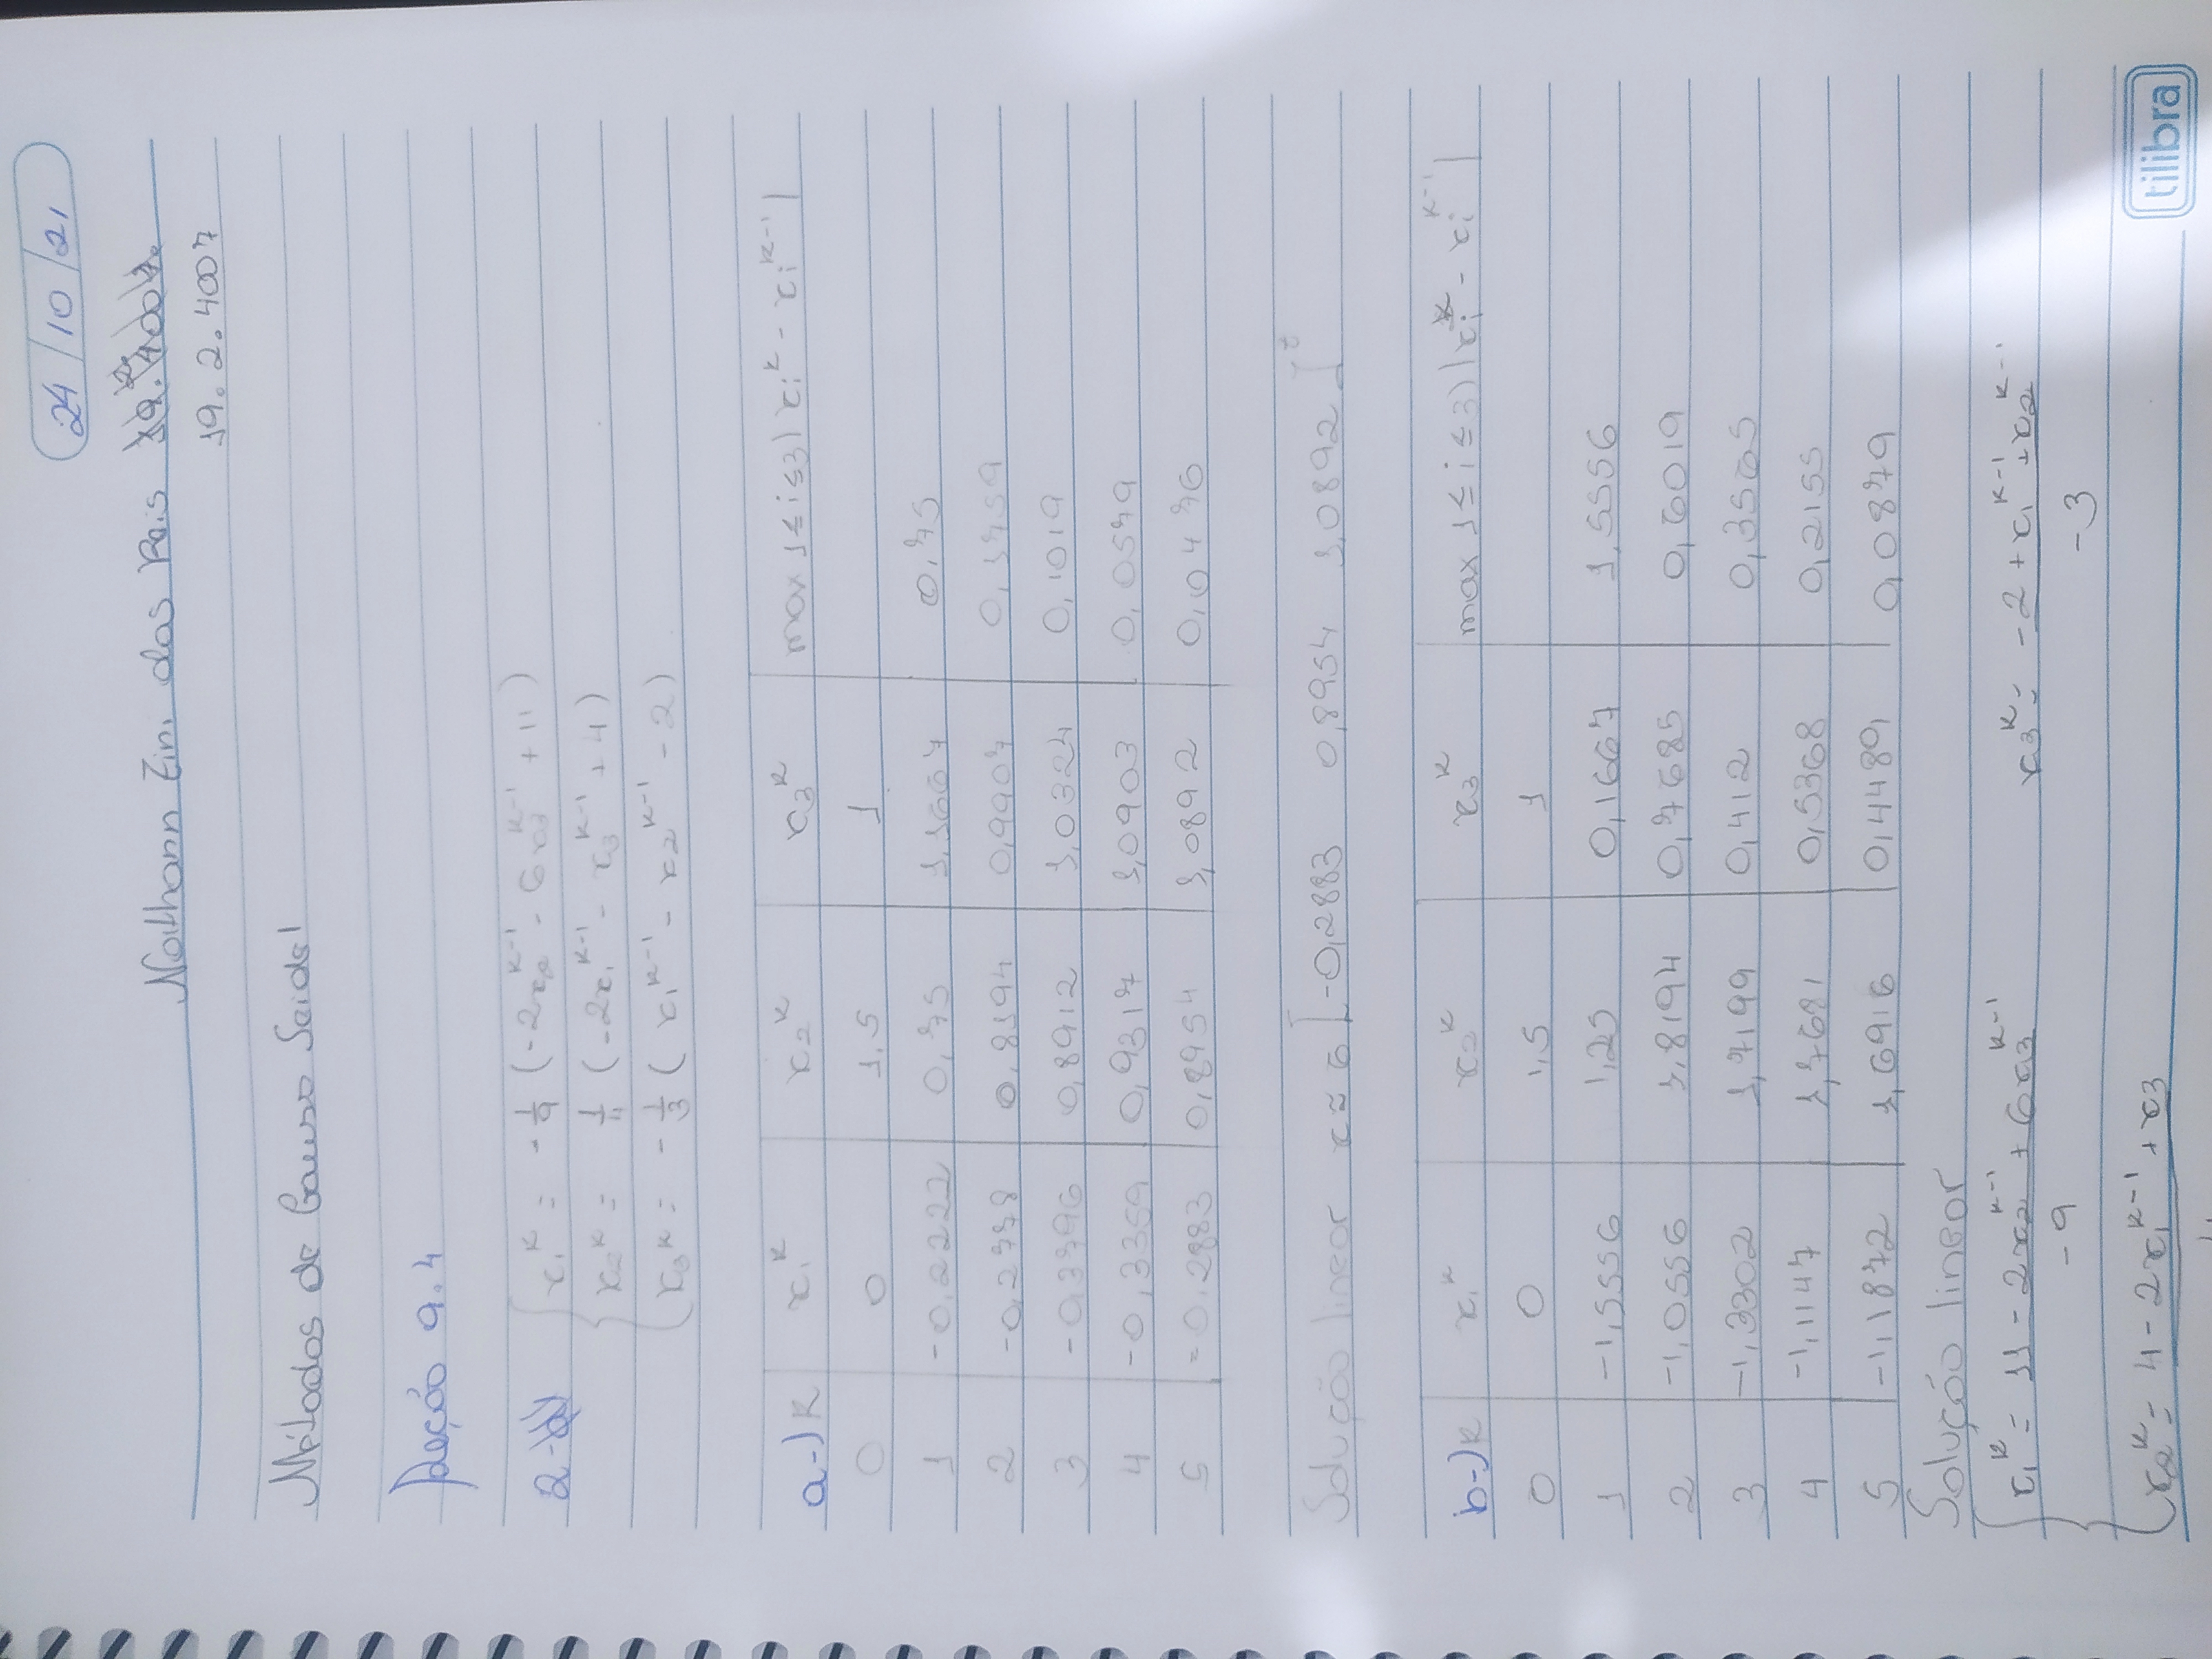 24/10/21
Nathann Zini dos Reis
19.2.4007
Métodos de Gauss Seidel
Seção 9.4
2-
x₁ᵏ = -1/9 (-2x₂ᵏ⁻¹ - 6x₃ᵏ⁻¹ + 11)
x₂ᵏ = 1/4 (-2x₁ᵏ⁻¹ - x₃ᵏ⁻¹ + 4)
x₃ᵏ = -1/3 (x₁ᵏ⁻¹ - x₂ᵏ⁻¹ - 2)
a-) K x₁ᵏ x₂ᵏ x₃ᵏ max 1≤i≤3 |xᵢᵏ - xᵢᵏ⁻¹|
0 0 1,5 1
1 -0,2222 0,75 1,1667 0,75
2 -0,2778 0,8194 0,9907 0,1759
3 -0,3796 0,8912 1,0324 0,1019
4 -0,3359 0,9317 1,0903 0,0579
5 -0,2883 0,8954 1,0892 0,0476
Solução linear x ≈ [-0,2883 0,8954 1,0892]ᵗ
b-) K x₁ᵏ x₂ᵏ x₃ᵏ max 1≤i≤3) |xᵢᵏ - xᵢᵏ⁻¹|
0 0 1,5 1
1 -1,5556 1,25 0,1667 1,5556
2 -1,0556 1,8194 0,7685 0,6019
3 -1,3302 1,7199 0,412 0,3565
4 -1,1147 1,7681 0,5368 0,2155
5 -1,1872 1,6916 0,4489 0,0879
Solução linear
x₁ᵏ = 11 - 2x₂ᵏ⁻¹ + 6x₃ᵏ⁻¹ / -9 x₃ᵏ = -2 + x₁ᵏ⁻¹ + x₂ᵏ⁻¹ / -3
x₂ᵏ = 4 - 2x₁ᵏ⁻¹ + x₃
tilibra